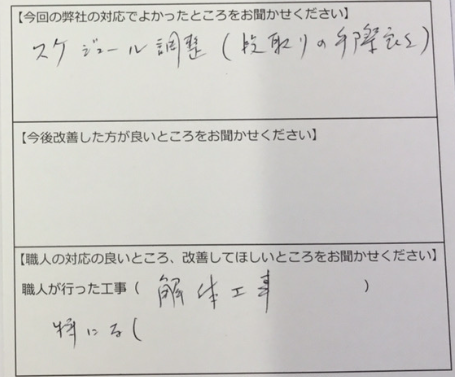 【今回の弊社の対応でよかったところをお聞かせください】
スケジュール調整(段取りの手際良さ)
【今後改善した方が良いところをお聞かせください】
【職人の対応の良いところ、改善してほしいところをお聞かせください】
職人が行った工事( 解体工事 )
特になし